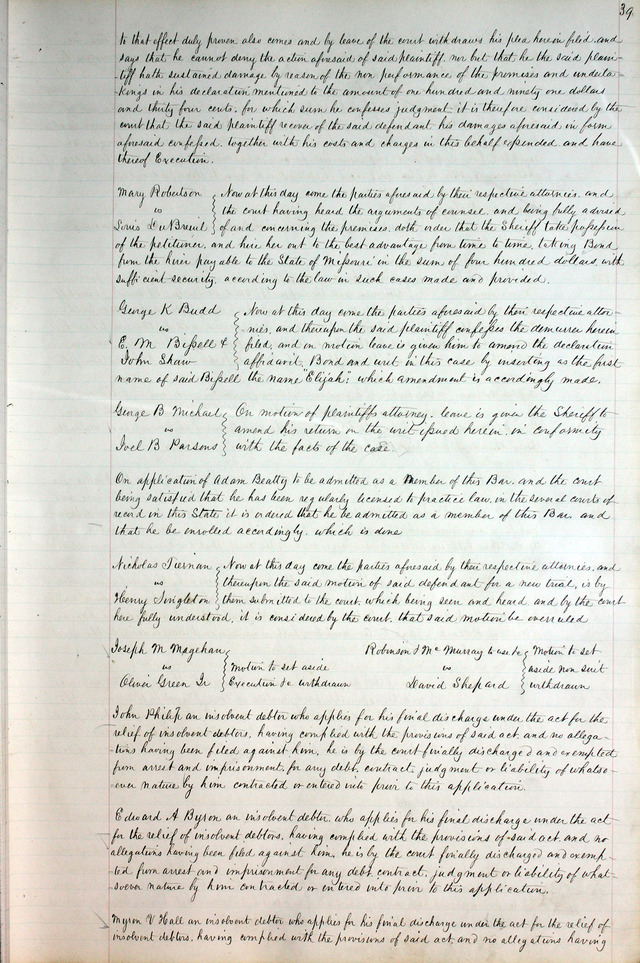 39
to that effect duly proven also comes and by leave of the court withdraws his plea herein filed. and
says that he cannot deny the action aforesaid of said plaintiff. nor but that he the said plain-
tiff hath sustained damage by reason of the non performance of the promises and underta-
kings in his declaration mentioned to the amount of one hundred and ninety one dollars
and thirty four cents. for which sum he confesses judgment. it is therefore considered by the
court that the said plaintiff recover of the said defendant his damages aforesaid in form
aforesaid confessed, together with his costs and charges in this behalf expended and have
thereof Execution.
Mary Robertson Now at this day come the parties aforesaid by their respective attornies. and
vs the court having heard the arguments of counsel and being fully advised
Louis DuBreuil of and concerning the premises. doth order that the Sheriff take possession
of the petitioner, and hire her out to the best advantage from time to time, taking Bond
from the hirer payable to the State of Missouri in the sum of four hundred dollars, with
sufficient security according to the law in such cases made and provided.
George K Budd Now at this day come the parties aforesaid by their respective attor-
vs nies, and thereupon the said plaintiff confesses the demurrer herein
E. M Bissell & filed, and on motion leave is given him to amend the declaration
John Shaw affidavit, Bond and writ in this case by inserting as the first
name of said Bissell the name "Elijah"; which amendment is accordingly made.
George B. Michael On motion of plaintiffs attorney. leave is given the Sheriff to
vs amend his return on the writ issued herein. in conformity
Joel B Parsons with the facts of the case
On application of Adam Beatty to be admitted as a Member of this Bar. and the court
being satisfied that he has been regularly licensed to practice law in the several courts of
record in this State it is ordered that he be admitted as a member of this Bar. and
that he be enrolled accordingly. which is done
Nicholas Tiernan Now at this day come the parties aforesaid by their respective attornies. and
vs thereupon the said motion of said defendant for a new trial, is by
Henry Singleton them submitted to the court. which being seen and heard and by the court
here fully understood, it is considered by the court. that said motion be overruled
Joseph M Magehan Robinson & McMurray to use &c Motion to set
vs Motion to set aside vs aside non suit
Oliver Green Jr Execution &c withdrawn David Shepard withdrawn
John Philip an insolvent debtor who applies for his final discharge under the act for the
relief of insolvent debtors, having complied with the provisions of said act. and no allega-
tions having been filed against him, he is by the court finally discharged and exempted
from arrest and imprisonment. for any debt. contract. judgment or liability of whatso-
ever nature by him contracted or entered into prior to this application.
Edward A Byron an insolvent debtor. who applies for his final discharge under the act
for the relief of insolvent debtors. having complied with the provisions of said act. and no
allegations having been filed against him. he is by the court finally discharged and exemp-
ted from arrest and imprisonment for any debt contract. judgment or liability of what-
soever nature by him contracted or entered into prior to this application.
Myron V Hall an insolvent debtor who applies for his final discharge under the act for the relief of
insolvent debtors. having complied with the provisions of said act, and no allegations having